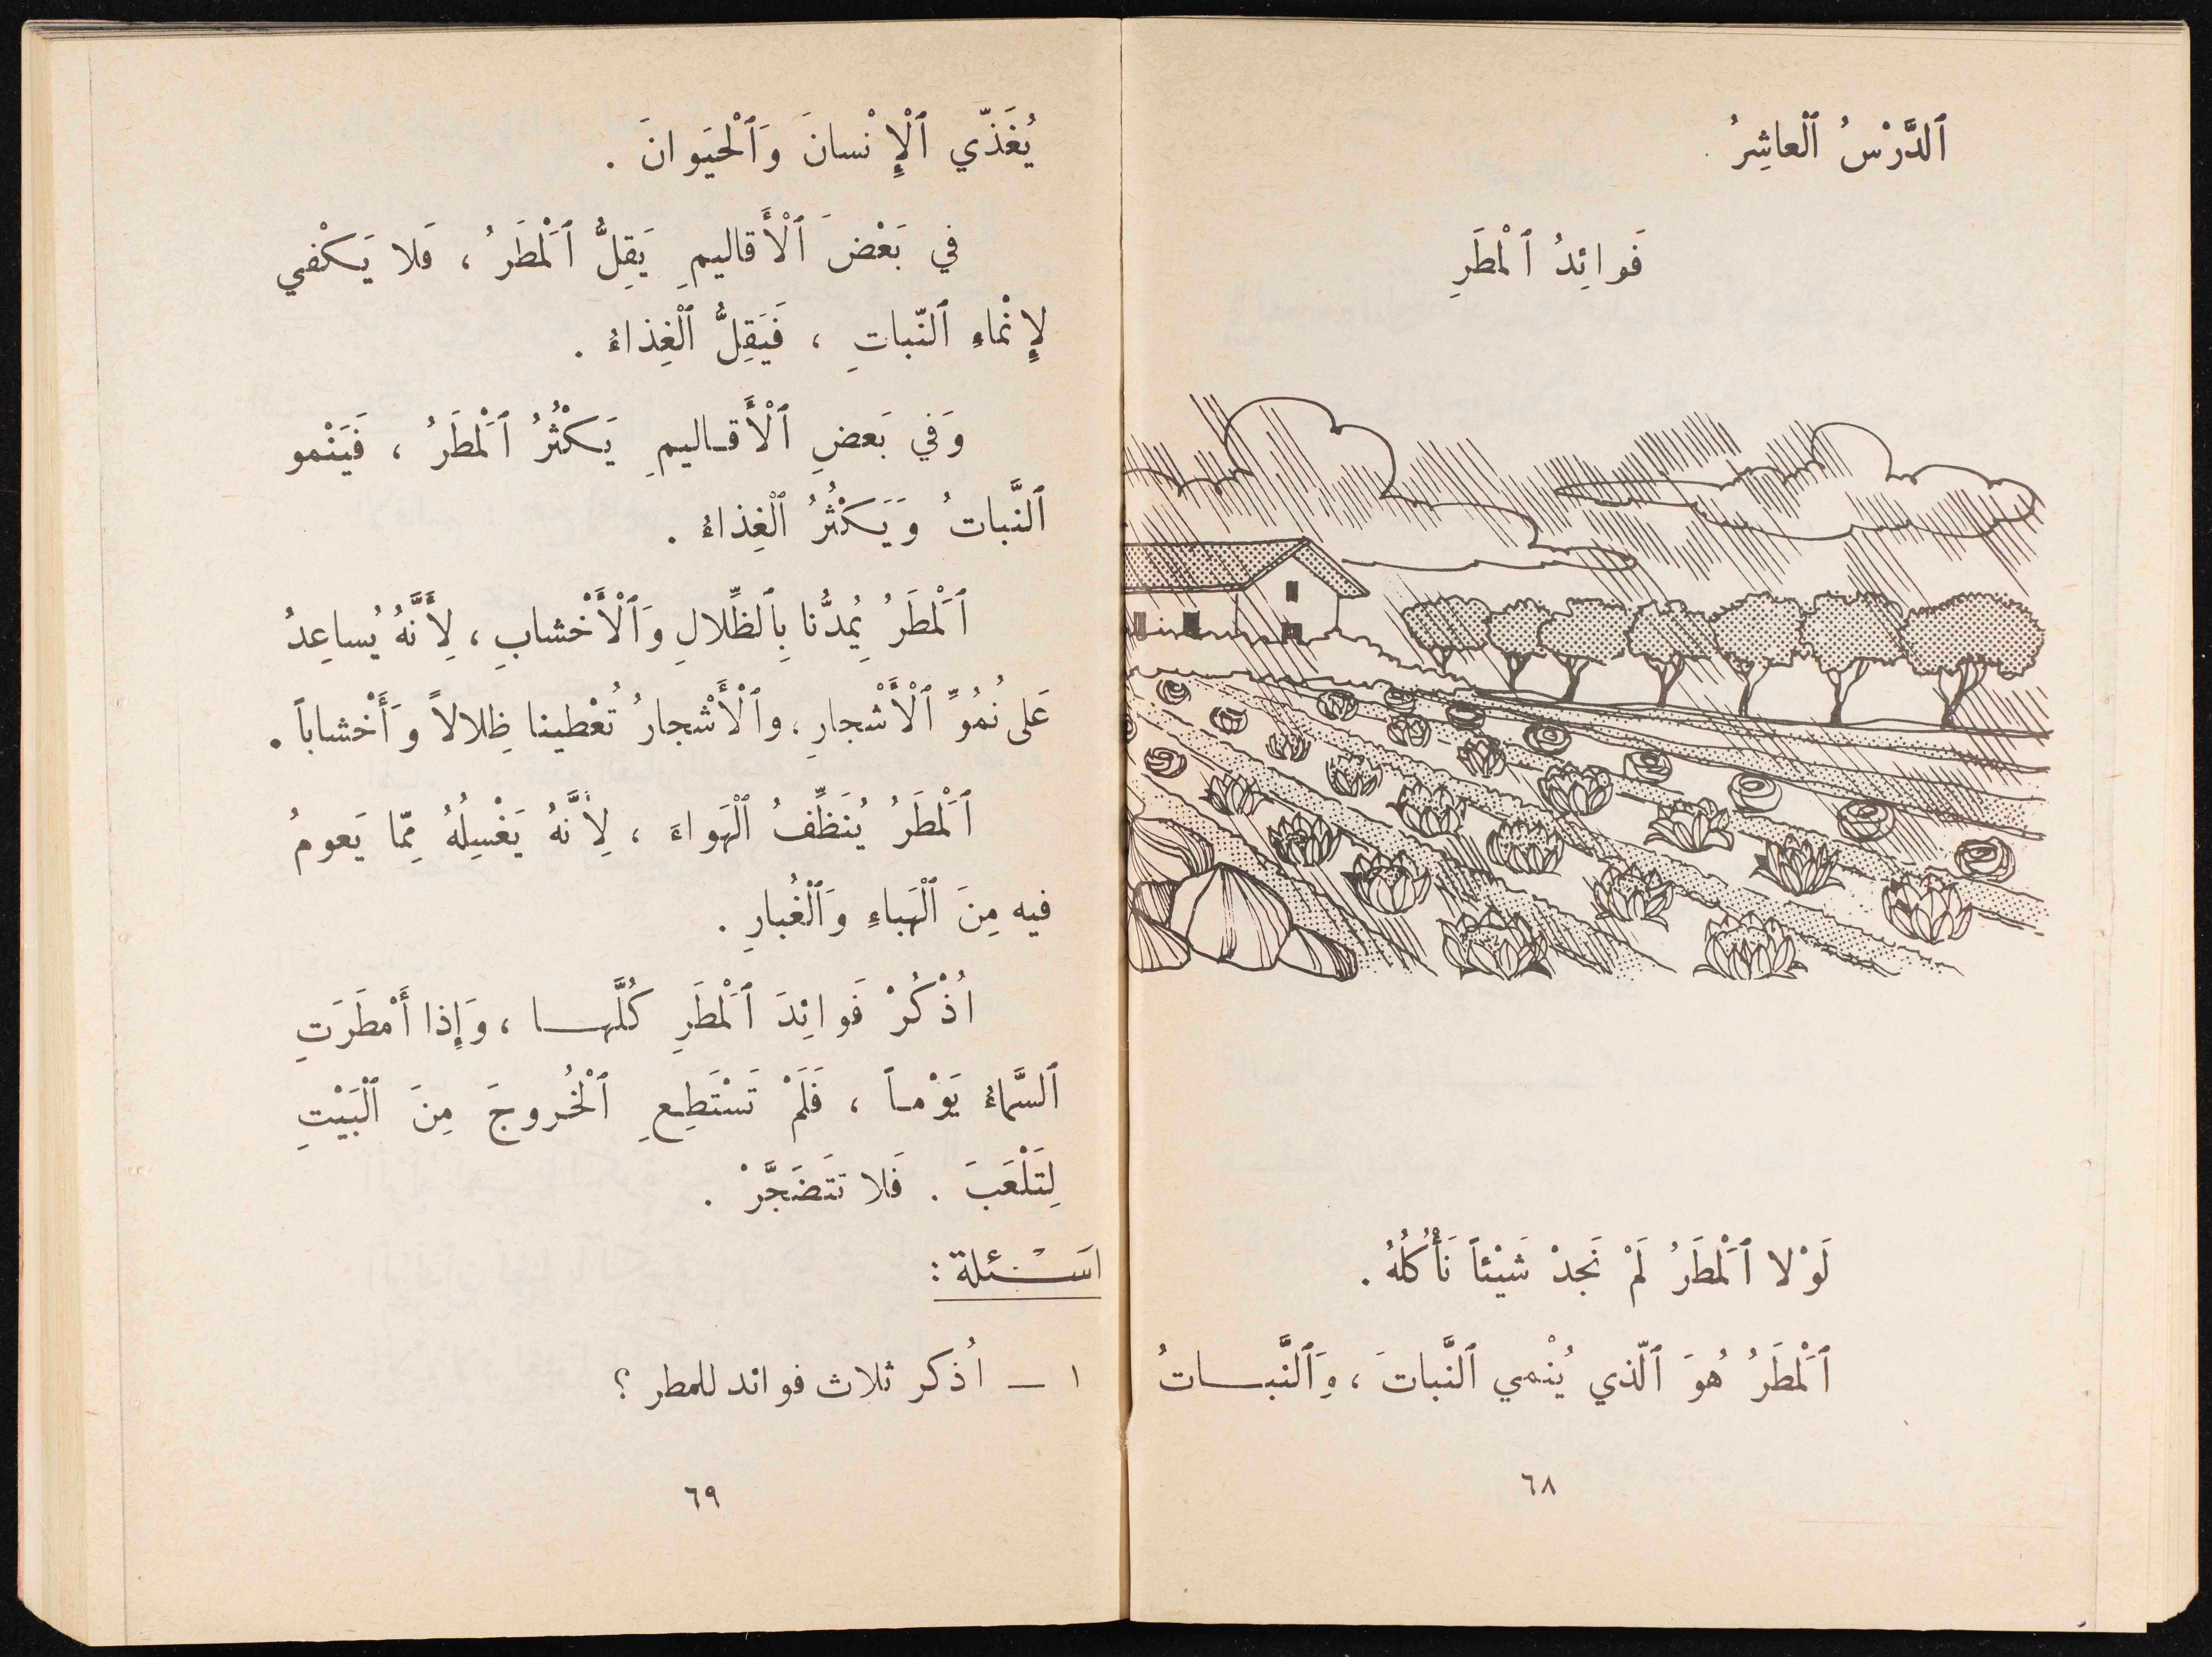 ٱلدَّرْسُ ٱلْعاشِرُ
فَوائِدُ ٱلْمطَرِ
لَوْلا ٱلْمَطَرُ لَمْ نَجِدْ شَيْئاً نَأْكُلُهُ .
ٱلْمَطَرُ هُوَ ٱلّذي يُنْمي ٱلنَّباتَ ، وَٱلنَّبــاتُ
٦٨
يُغَذّي ٱلْإِنْسانَ وَٱلْحَيَوانَ .
في بَعْضَ ٱلْأَقاليمِ يَقِلُّ ٱلْمَطَرُ ، فَلا يَكْفي
لِإِنْماءِ ٱلنّباتِ ، فَيَقِلُّ ٱلْغِذاءُ .
وَفي بَعضِ ٱلْأَقــاليمِ يَكْثُرُ ٱلْمَطَرُ ، فَيَنْمو
ٱلنَّباتُ وَيَكْثُرُ ٱلْغِذاءُ .
ٱلْمَطَرُ يُمِدُّنا بِٱلظِّلالِ وَٱلْأَخْشابِ ، لِأَنَّهُ يُساعِدُ
عَلى نُمُوِّ ٱلْأَشْجارِ ، وٱلْأَشْجارُ تُعْطينا ظِلالاً وَأَخْشاباً .
ٱلْمَطَرُ يُنَظِّفُ ٱلْهَواءَ ، لِأَنَّهُ يَغْسِلُهُ مِمّا يَعومُ
فيه مِنَ ٱلْهَباءِ وَٱلْغُبارِ .
اُذْكُرْ فَوائِدَ ٱلْمَطَرِ كُلَّهــا ، وَإِذا أَمْطَرَتِ
ٱلسَّماءُ يَوْمــاً ، فَلَمْ تَسْتَطِعِ ٱلْخُروجَ مِنَ ٱلْبَيْتِ
لِتَلْعَبَ . فَلا تَتَضَجَّرْ .
اَسْــئلة :
١ ــ اُذكر ثلاث فوائد للمطر ؟
٦٩